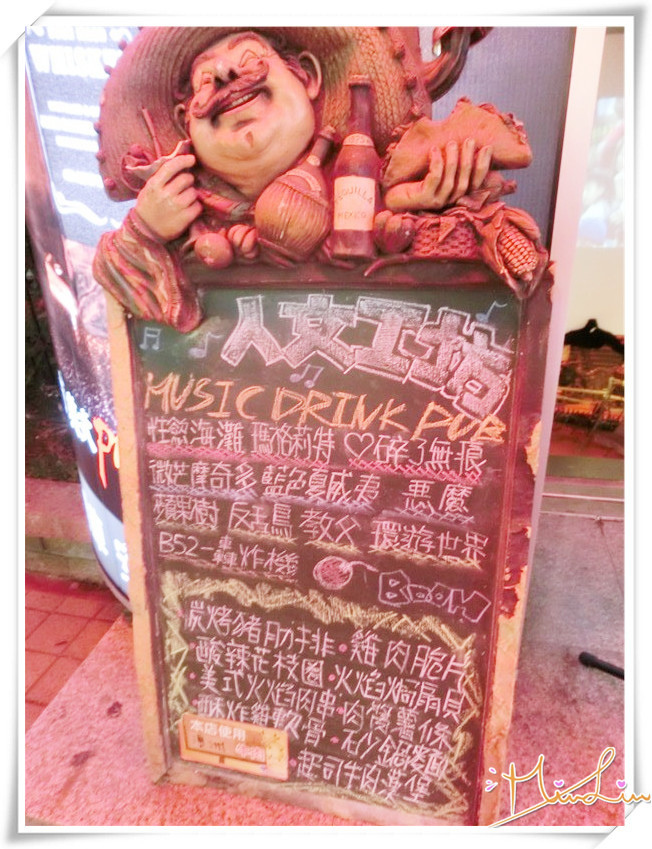 TEQUILLA
MEXICO
人文工坊
MUSIC DRINK PUB
性慾海灘 瑪格莉特 ♡碎了無痕
微芒摩奇多 藍色夏威夷 悪魔
蘋果樹 反舌鳥 教父 環遊世界
B52-轟炸機 BOOM
·炭烤豬肋排·雞肉脆片
·酸辣花枝圈·火焰焗扇貝
·美式火焰肉串·肉醬薯條
·酥炸雞軟骨
·起司牛肉漢堡
本店使用
MiaoLin